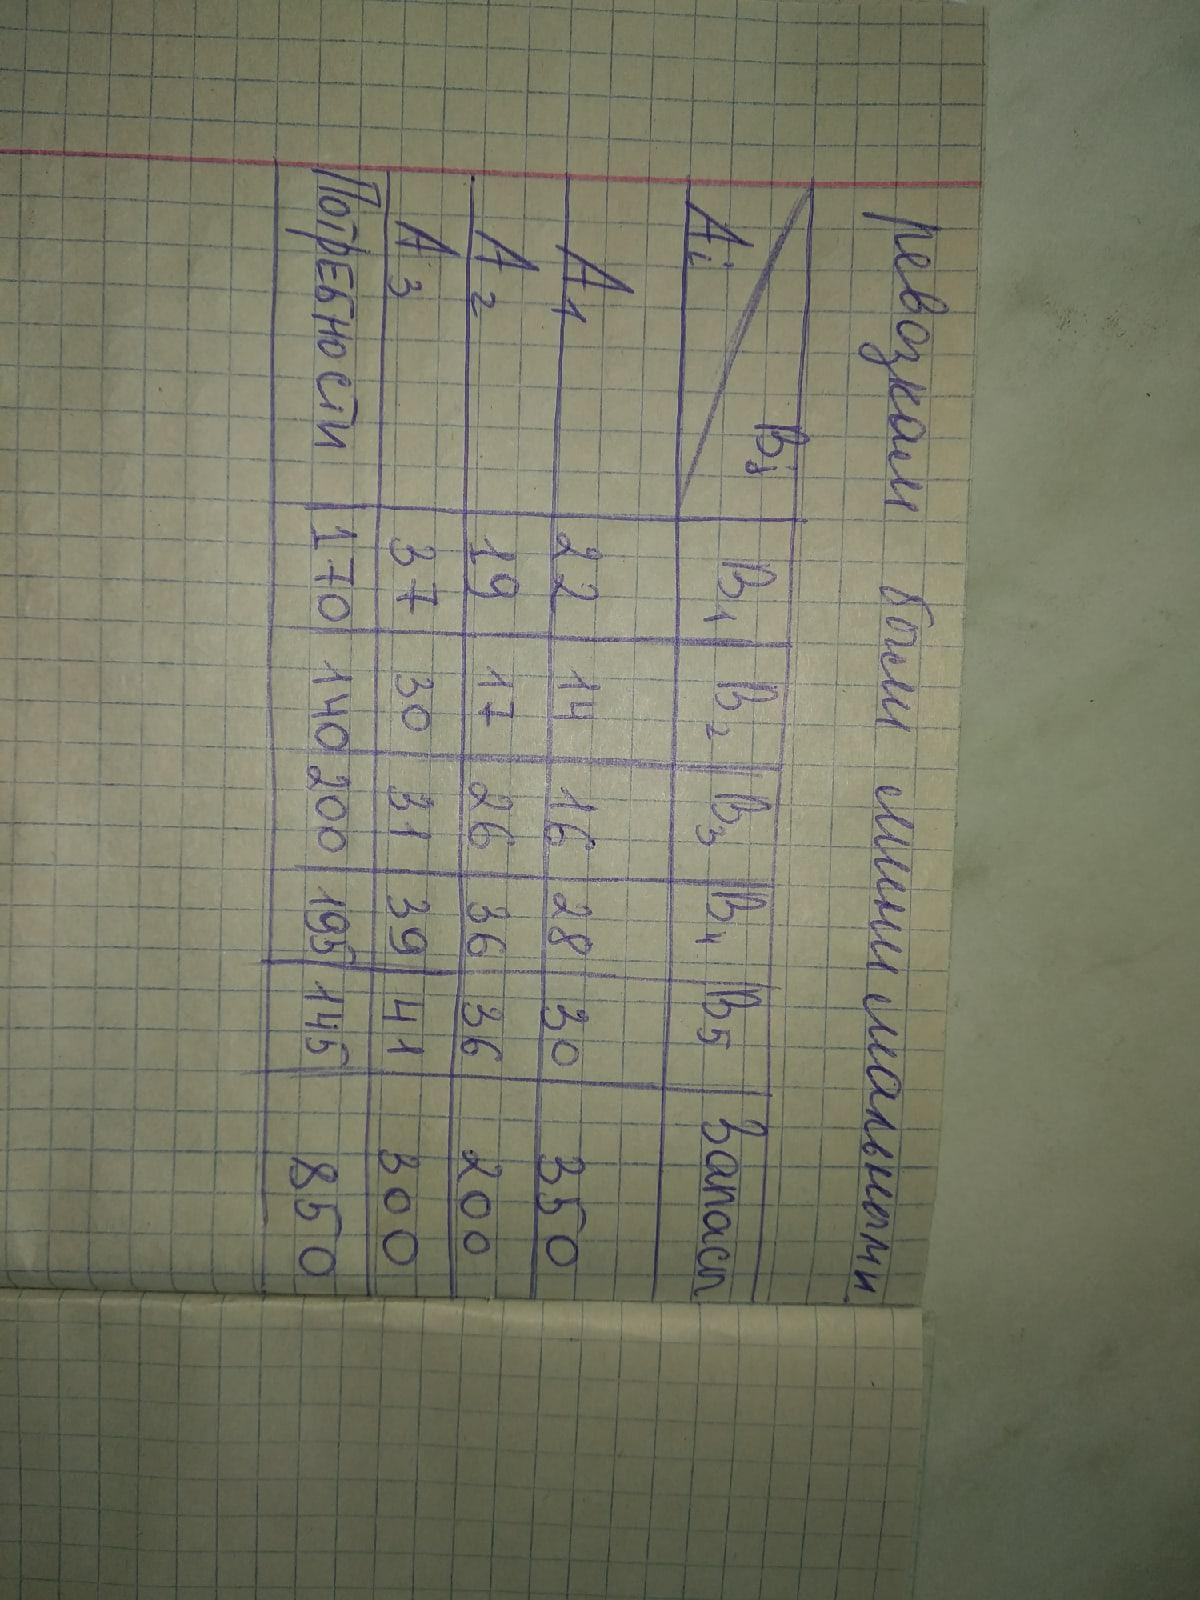 ревозкам были минимальными
Ai Bj B1 B2 B3 B4 B5 Запасы
A1 22 14 16 28 30 350
A2 19 17 26 36 36 200
A3 37 30 31 39 41 300
Потребности 170 140 200 195 145 850